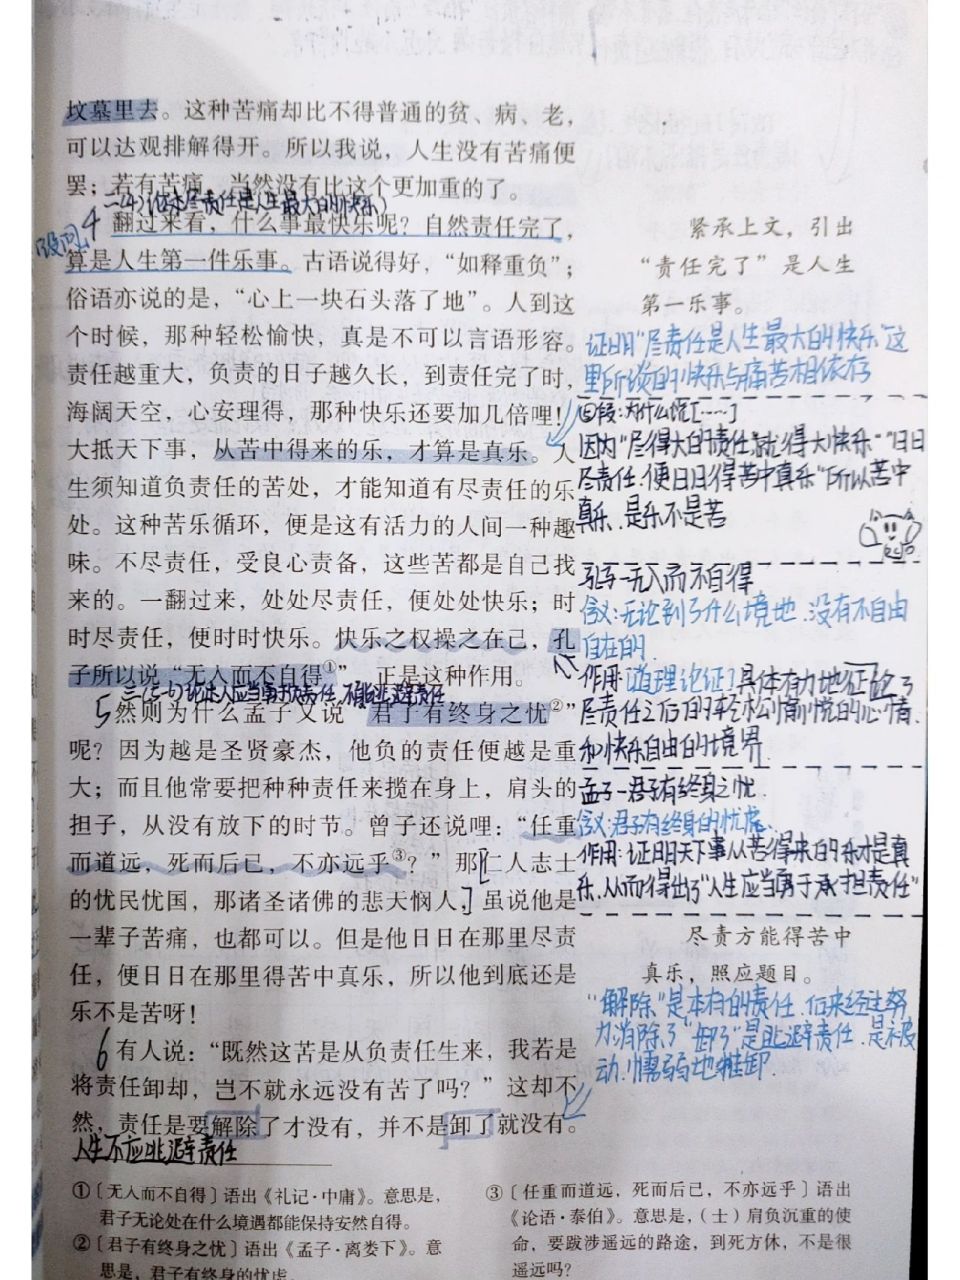 坟墓里去。这种苦痛却比不得普通的贫、病、老，
可以达观排解得开。所以我说，人生没有苦痛便
罢；若有苦痛，当然没有比这个更加重的了。
二(4)论述尽责任是人生最大的快乐)
4 翻过来看，什么事最快乐呢？自然责任完了，
设问
算是人生第一件乐事。古语说得好，“如释重负”；
俗语亦说的是，“心上一块石头落了地”。人到这
个时候，那种轻松愉快，真是不可以言语形容。
责任越重大，负责的日子越久长，到责任完了时，
海阔天空，心安理得，那种快乐还要加几倍哩！
大抵天下事，从苦中得来的乐，才算是真乐。人
生须知道负责任的苦处，才能知道有尽责任的乐
处。这种苦乐循环，便是这有活力的人间一种趣
味。不尽责任，受良心责备，这些苦都是自己找
来的。一翻过来，处处尽责任，便处处快乐；时
时尽责任，便时时快乐。快乐之权操之在己，孔
子所以说“无入而不自得①”，正是这种作用。
论述人应当勇于负责任，不能逃避责任
5 然则为什么孟子又说“君子有终身之忧②”
呢？因为越是圣贤豪杰，他负的责任便越是重
大；而且他常要把种种责任来揽在身上，肩头的
担子，从没有放下的时节。曾子还说哩：“任重
而道远，死而后已，不亦远乎③？”那[仁人志士
的忧民忧国，那诸圣诸佛的悲天悯人，]虽说他是
一辈子苦痛，也都可以。但是他日日在那里尽责
任，便日日在那里得苦中真乐，所以他到底还是
乐不是苦呀！
6 有人说：“既然这苦是从负责任生来，我若是
将责任卸却，岂不就永远没有苦了吗？”这却不
然，责任是要解除了才没有，并不是卸了就没有。
人生不应逃避责任
紧承上文，引出
“责任完了”是人生
第一乐事。
证明“尽责任是人生最大的快乐”这
里所谈的快乐与痛苦相依存
④段：为什么说[……]
因为“尽得大的责任，就得大快乐”“日日
尽责任，便日日得苦中真乐”所以苦中
真乐，是乐不是苦
孔子—无入而不自得
含义：无论到了什么境地，没有不自由
自在的
作用：[道理论证]具体有力地证论了
尽责任之后的轻松愉悦的心情，
和快乐自由的境界
孟子—君子有终身之忧
含义：君子有终身的忧虑
作用：证明天下事从苦得来的乐才是真
乐，从而得出了“人生应当勇于承担责任”
尽责方能得苦中
真乐，照应题目。
“解除”是本有的责任，后来经过努
力消除了“卸了”是逃避责任，是被
动、懦弱地推卸
①〔无入而不自得〕语出《礼记·中庸》。意思是，
君子无论处在什么境遇都能保持安然自得。
②〔君子有终身之忧〕语出《孟子·离娄下》。意
思是，君子有终身的忧虑。
③〔任重而道远，死而后已，不亦远乎〕语出
《论语·泰伯》。意思是，（士）肩负沉重的使
命，要跋涉遥远的路途，到死方休，不是很
遥远吗？